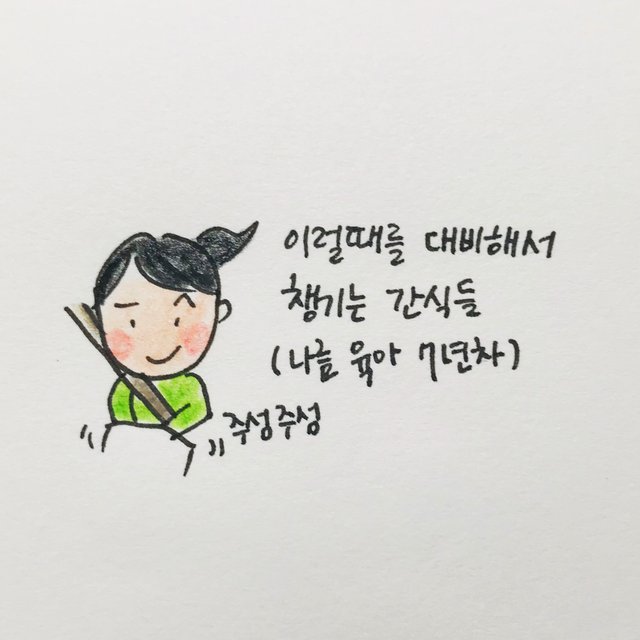 이럴때를 대비해서
챙기는 간식들
(나름 육아 7년차)
주섬주섬